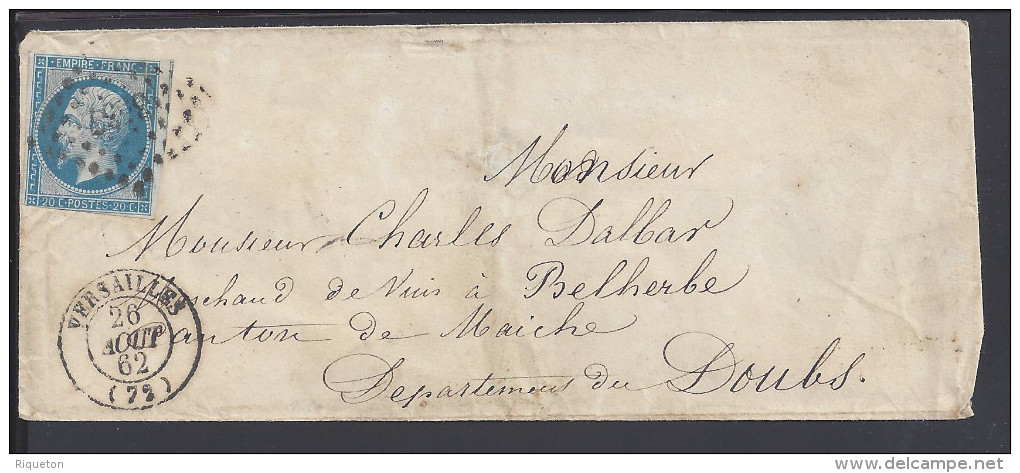 EMPIRE FRANC
20 C·POSTES·20 C
Monsieur
Monsieur Charles Dalbar
Marchand de Vins à Belherbe
Canton de Maiche
Departement du Doubs.
VERSAILLES
26
AOUT
62
(72)
Riqueton
www.delcampe.net